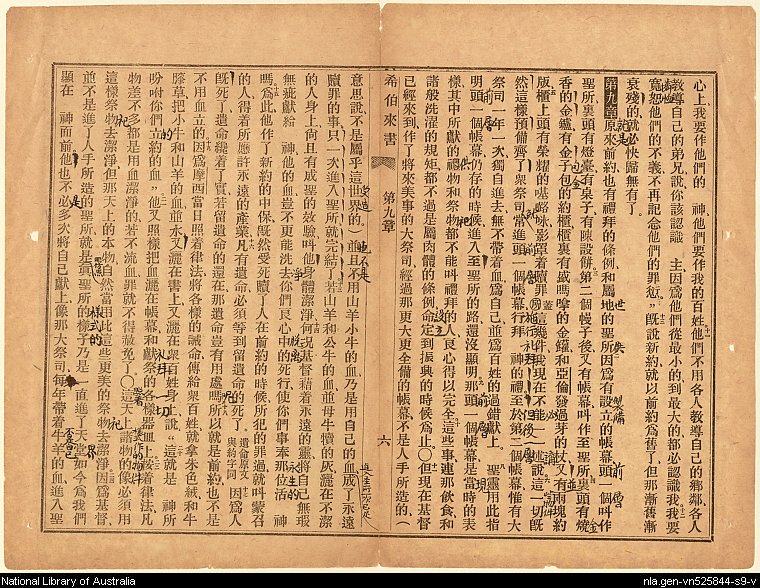 心上、我要作他們的　神他們要作我的百姓他們不用各人教導自己的鄉鄰各人
教導自己的弟兄說你該認識　主因爲他們從最小的到最大的都必認識我我要
寬恕他們的不義不再記念他們的罪愆旣說新約就以前約爲舊了但那漸舊漸
衰殘的就必快歸無有了。
第九章 原來前約也有禮拜的條例和屬地的聖所因爲有設立的帳幕頭一個叫作
聖所裏頭有燈臺有桌子有陳設餅第二個幔子後又有帳幕叫作至聖所裏頭有燒
香的金鑪有金子包的約櫃櫃裏有盛嗎嗱的金罐和亞倫發過芽的杖又有兩塊約
版櫃上頭有榮耀的影罩着贖罪所這幾件我現在不能一一述說這一切旣
然這樣預備齊了衆祭司常進頭一個帳幕行拜　神的禮至於第二個帳幕惟有大
祭司一年一次獨自進去無不帶着血爲自己並爲百姓的過錯獻上　聖靈用此指
明頭一個帳幕仍存的時候進入至聖所的路還沒顯明那頭一個帳幕是當時的表
樣其中所獻的禮物和祭物都不能叫禮拜的人良心得以完全這些事連那飲食和
諸般洗濯的規矩都不過是屬肉體的條例命定到振興的時候爲止○但現在基督
已經來到作了將來美事的大祭司經過那更大更全備的帳幕不是人手所造的（
希伯來書　第九章　六
意思說不是屬乎這世界的）並且不用山羊小牛的血乃是用自己的血成了永遠
贖罪的事只一次進入聖所就完結了若山羊和公牛的血並母牛犢的灰灑在不潔
的人身上尙且有成聖的效驗叫他身體潔淨何況基督藉着永遠的靈將自己無瑕
無疵獻給　神他的血豈不更能洗去你們良心中的死行使你們事奉那位活　神
嗎爲此他作了新約的中保旣然受死贖了人在前約的時候所犯的罪過就叫蒙召
的人得着所應許永遠的產業凡有遺命必須等到留遺命的死了 遺命原文與約字同 因爲人
旣死了遺命纔着了實若留遺命的還在那遺命豈有用處嗎所以就是前約也不是
不用血立的因爲摩西當日照着律法將各樣的誡命傳給衆百姓就拿朱色絨和牛
膝草把小牛和山羊的血並水又灑在書上又灑在衆百姓身上說這就是　神所
吩咐你們立約的血他又照樣把血灑在帳幕和獻祭的各樣器皿上按着律法凡
物差不多都是用血潔淨的若不流血罪就不得赦免了○這天上諸物的像必須用
這樣祭物去潔淨但那天上的本物自然當用此這些更美的祭物去潔淨因爲基督
並不是進了人手所造的聖所就是眞聖所的樣子乃是一直進了天堂如今爲我們
顯在　神面前他也不必多次將自己獻上像那大祭司每年帶着牛羊的血進入聖
National Library of Australia
nla.gen-vn525844-s9-v